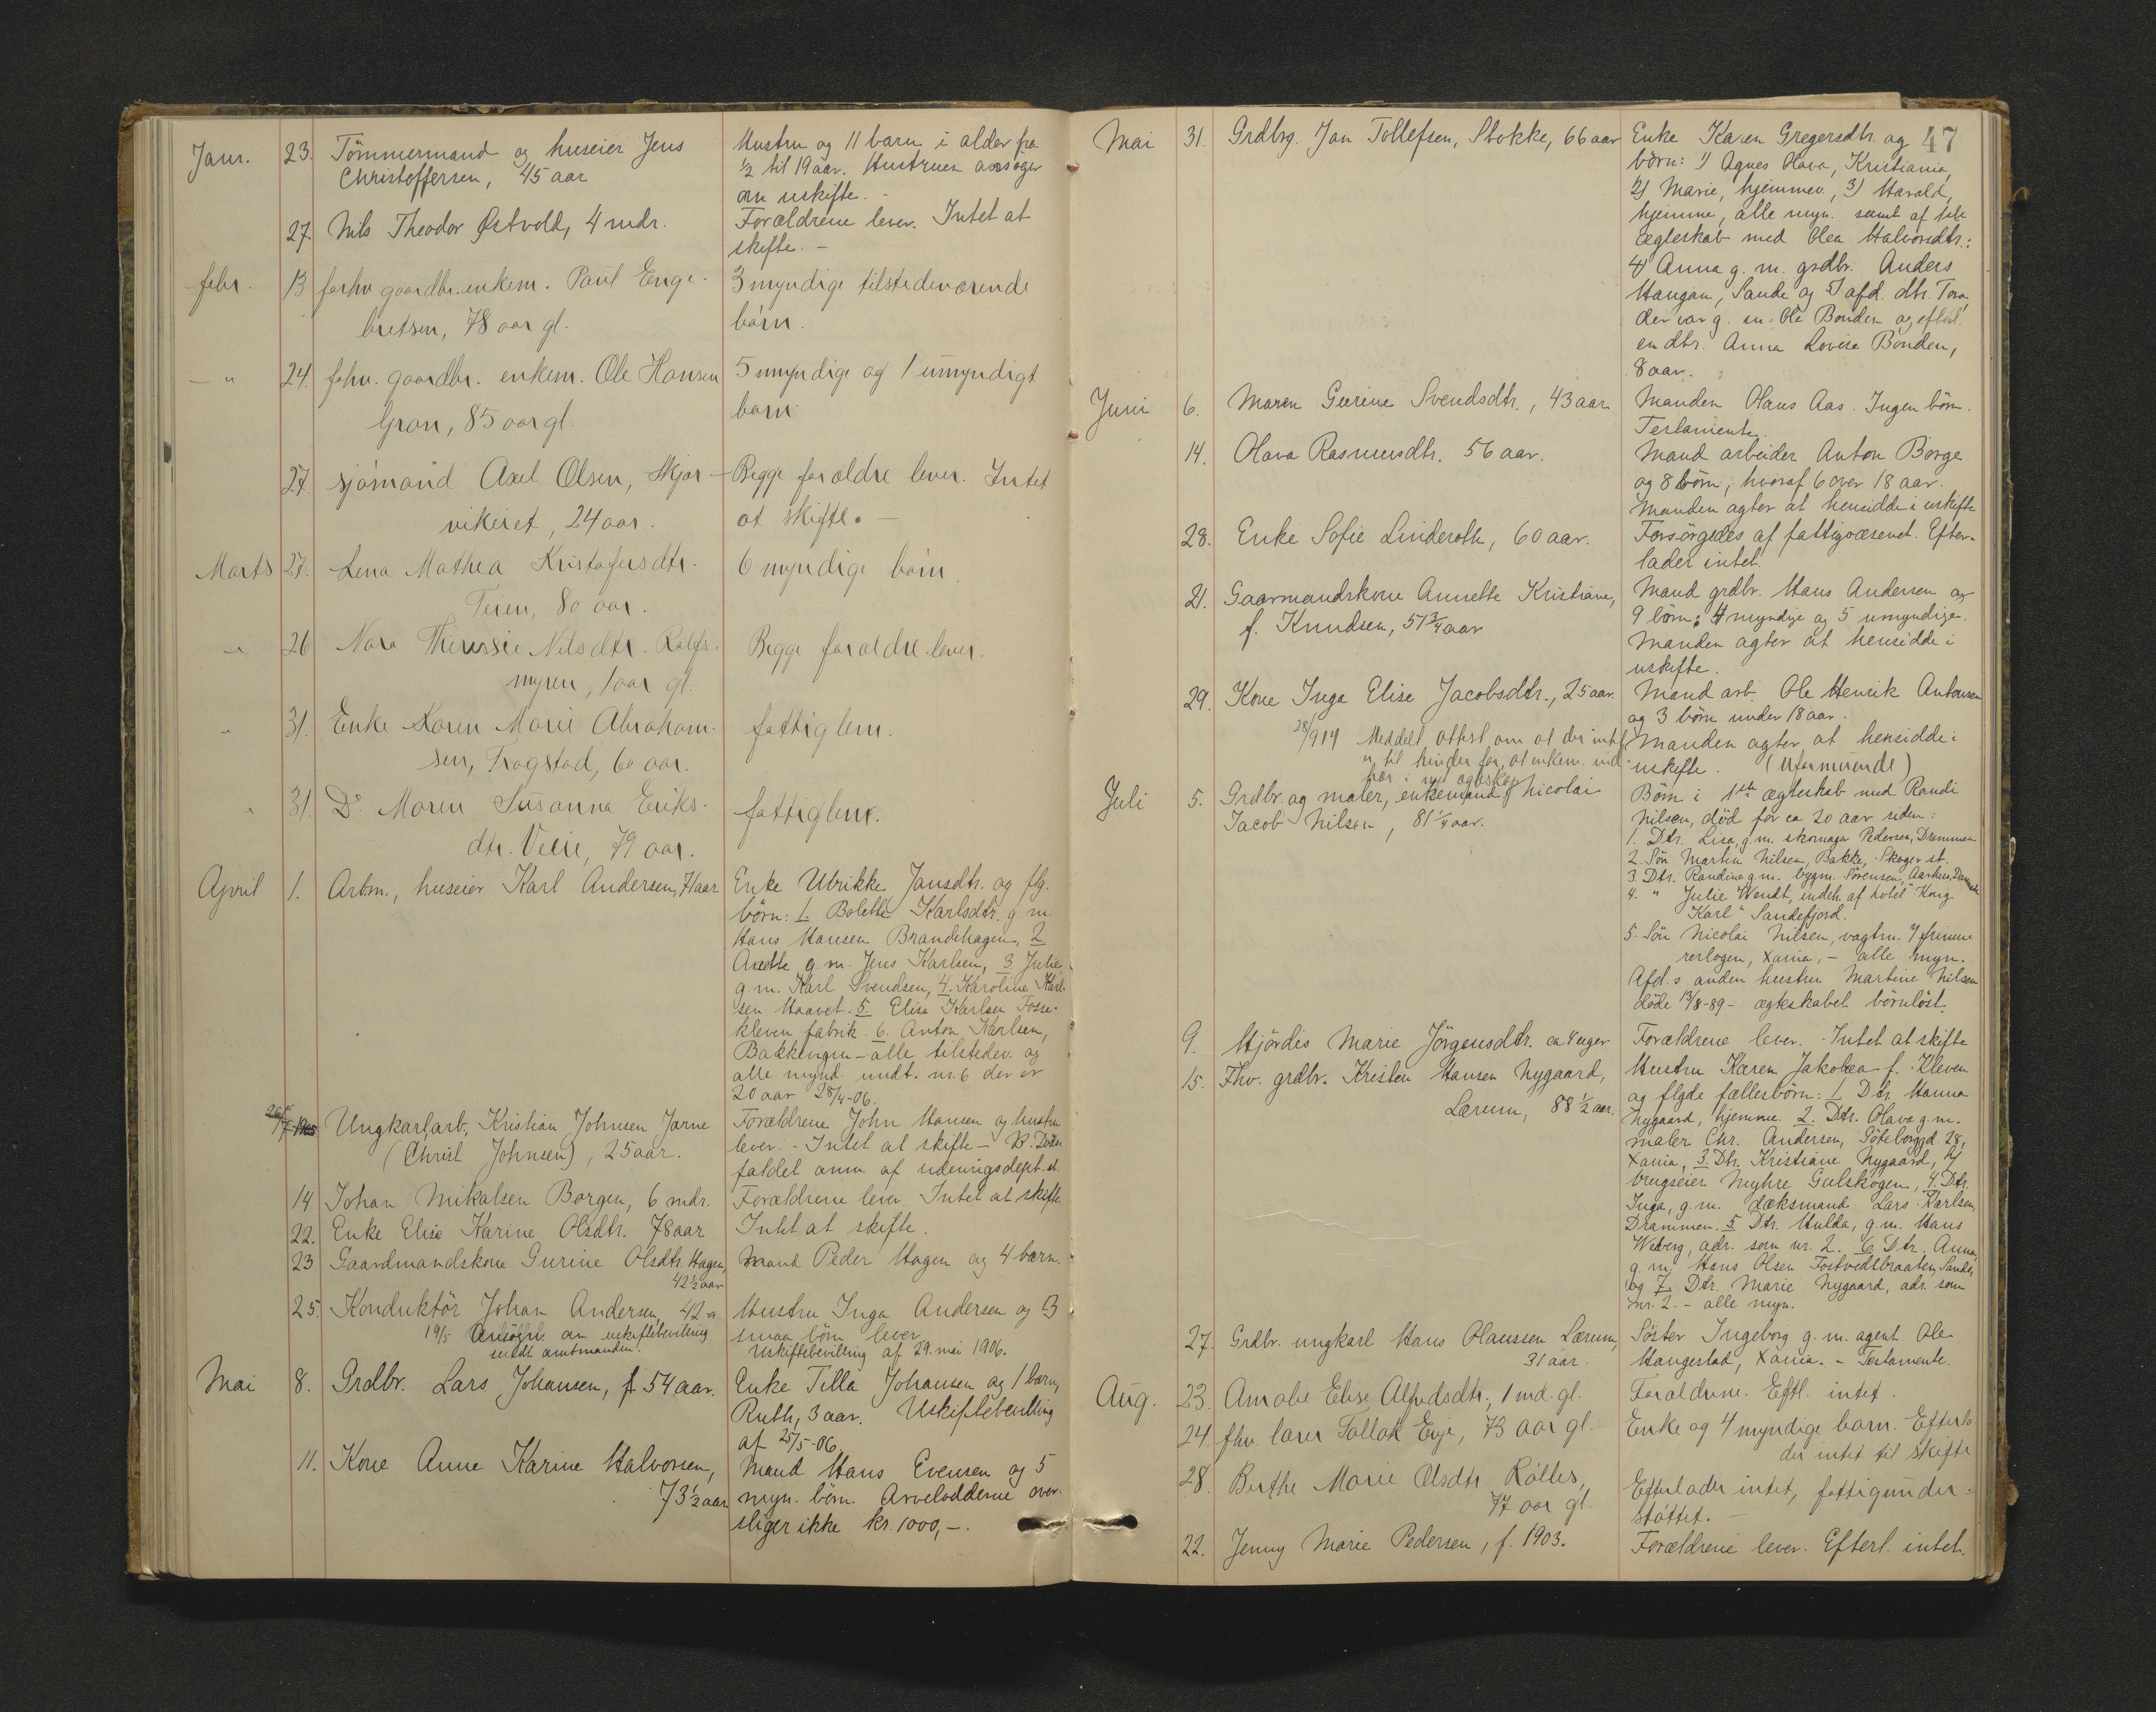 Janr. 23. Tömmermand og huseier Jens
Christoffersen, 45 aar
Hustru og 11 barn i alder fra
½ til 19 aar. Hustruen ansøger
om uskifte.
27. Nils Theodor Østvold, 4 mdr.
Forældrene lever. Intet at
skifte. –
febr. 13 forhv. gaardbr. enkem. Paul Enge-
bretsen, 78 aar gl.
3 myndige tilstedeværende
børn.
– " 24. fohv. gaardbr. enkem. Ole Hansen
Gran, 85 aar gl.
5 myndige og 1 umyndigt
barn
27. sjömand Axel Olsen, Skjør-
vikeiet, 24 aar.
Begge forældre lever. Intet
at skifte. –
Marts 27. Lena Mathea Kristofersdtr.
Teien, 80 aar.
6 myndige børn.
" 26 Nora Theresie Nilsdtr. Rolfs-
myren, 1 aar gl.
Begge forældre lever.
" 31. Enke Karen Marie Abraham-
sen, Frogstad, 60 aar.
fattiglem.
" 31. Do. Maren Susanna Eriks-
dtr. Veie, 79 aar.
fattiglem.
April 1. Arbm., huseier Karl Andersen, 71 aar
Enke Ulrikke Jansdtr. og flg.
börn: 1. Bolette Karlsdtr. g. m.
Hans Hansen Brandehagen, 2
Anette g. m. Jens Karlsen, 3 Julie
g. m. Karl Svendsen, 4. Karoline Karl-
sen Haavet. 5. Elise Karlsen Fosse-
kleven fabrik. 6. Anton Karlsen,
Bakkevigen – alle tilstedev. og
alle mynd. undt. nr. 6 der er
20 aar 28/4-06.
1905 Ungkarl, arb. Kristian Johnsen Jarne
(Christ Johnsen), 25 aar.
Forældrene John Hansen og hustru
lever. – Intet at skifte –
faldet anm. af udenrigsdept. st.
14 Johan Mikalsen Borgen, 6 mdr.
Forældrene lever. Intet at skifte
22. Enke Elise Karine Olsdtr. 78 aar
Intet at skifte.
23 Gaardmandskone Gurine Olsdtr. Hagen,
42½ aar
Mand Peder Hagen og 4 barn.
25. Konduktör Johan Andersen, 42 a
19/5 Ansøgn. om uskiftebevilling
sendt amtmanden.
Hustru Inga Andersen og 3
smaa börn lever.
Uskiftebevilling af 29. mai 1906.
Mai 8. Grdbr. Lars Johansen, 54 aar.
Enke Tilla Johansen og 1 barn,
Ruth, 3 aar. Uskiftebevilling
af 25/5-06.
11. Kone Anne Karine Halvorsen,
73½ aar
Mand Hans Evensen og 5
myn. börn. Arvelodderne over-
stiger ikke kr. 1000,–.
47
Mai 31. Grdbrg. Jan Tollefsen, Stokke, 66 aar
Enke Karen Gregersdtr. og
börn: 1) Agnes Olava, Kristiania,
2) Marie, hjemmev., 3) Harald,
hjemme, alle myn. samt af tidl.
ægteskab med Olea Halvorsdtr.:
4) Anna g. m. grdbr. Anders
Haugan, Sande og 5 afd. dtr. Tora,
der var g. m. Ole Bonden og efterl.
en dtr. Anna Lovise Bonden,
8 aar.
Juni 6. Maren Gurine Svendsdtr., 43 aar
Manden Olaus Aas. Ingen börn.
Testamente.
14. Olava Rasmusdtr. 56 aar.
Mand arbeider Anton Börge
og 8 börn, hvoraf 6 over 18 aar.
Manden agter at hensidde i uskifte
28. Enke Sofie Linderoth, 60 aar.
Forsörgedes af fattigvæsenet. Efter-
lader intet.
21. Gaarmandskone Annette Kristiane,
f. Knudsen, 51¾ aar
Mand grdbr. Hans Andersen og
9 börn: 4 myndige og 5 umyndige.
Manden agter at hensidde i
uskifte.
29. Kone Inga Elise Jacobsdtr., 25 aar.
Mand arb. Ole Henrik Antonsen
og 3 börn under 18 aar.
Manden agter at hensidde i
uskifte. (Uformuende)
Meddelt attest om at der intet
er til hinder for, at enkem. ind-
trær i nyt ægteskap
Juli 5. Grdbr. og maler, enkemand Nicolai
Jacob Nilsen, 81¼ aar.
Börn i 1ste ægteskab med Randi
Nilsen, död for ca 20 aar siden:
1. Dtr. Lisa, g. m. skomager Pedersen, Drammen
2. Sön Martin Nilsen, Bakke, Skoger st.
3. Dtr. Randine g. m. bygm. Sörensen, Aarhus, Danmark
4. " Julie Wendt, indeh. af hotel "Kong
Karl" Sandefjord.
5. Sön Nicolai Nilsen, vagtm. i frimu-
rerlogen, Xania, – alle myn.
Afd.s anden hustru Martine Nilsen
döde 13/8-89 – ægteskabet börnlöst.
9. Hjördis Marie Jörgensdtr. ca 4 uger
Forældrene lever. Intet at skifte
15. Fhv. grdbr. Kristen Hansen Nygaard,
Lærum, 88½ aar.
Hustru Karen Jakobea f. Kleven
og flgde fællesbörn: 1. Dtr. Hanna
Nygaard, hjemme. 2. Dtr. Olava g. m.
maler Chr. Andersen, Göteborggd. 28,
Xania, 3. Dtr. Kristiane Nygaard,
brugseier Myhre Gulskogen, 4. Dtr.
Inga, g. m. dæksmand Lars Karlsen,
Drammen. 5 Dtr. Hulda, g. m. Hans
Weberg, adr. som nr. 2. 6. Dtr. Anna,
g. m. Hans Olsen Fostvedtbraaten, Sande,
og 7. Dtr. Marie Nygaard, adr. som
nr. 2. – alle myn.
27. Grdbr. ungkarl Hans Olaussen Lærum,
31 aar.
Söster Ingeborg g. m. agent Ole
Haugestad, Xania. – Testamente.
Aug. 23. Amalie Elise Alfredsdtr., 1 md. gl.
Forældrene. Eftl. intet.
24. fhv. lærer Tollak Evje, 73 aar gl.
Enke og 4 myndige barn. Efterla-
der intet til skifte
28. Berthe Marie Olsdtr. Rölles,
77 aar gl.
Efterlader intet, fattigunder-
støttet. –
22. Jenny Marie Pedersen, f. 1903.
Forældrene lever. Efterl. intet.